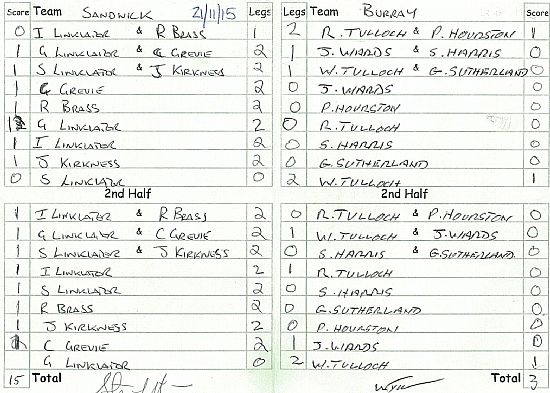 Score Team SANDWICK 21/11/15 Legs Legs Team BURRAY Score
0 I LINKLATOR & R BRASS 1 2 R. TULLOCH & P. HOURSTON 1
1 G LINKLATOR & C GREVIE 2 1 J. WARDS & S. HARRIS 0
1 S LINKLATOR & J KIRKNESS 2 1 W. TULLOCH & G. SUTHERLAND 0
1 C GREVIE 2 0 J. WARDS 0
1 R BRASS 2 0 P. HOURSTON 0
1 G LINKLATOR 2 0 R. TULLOCH 0
1 I LINKLATOR 2 0 S. HARRIS 0
1 J KIRKNESS 2 0 G. SUTHERLAND 0
0 S LINKLATOR 0 2 W. TULLOCH 1
2nd Half 2nd Half
1 I LINKLATOR & R BRASS 2 0 R. TULLOCH & P. HOURSTON 0
1 G LINKLATOR & C GREVIE 2 1 W. TULLOCH & J. WARDS 0
1 S LINKLATOR & J KIRKNESS 2 0 S. HARRIS & G. SUTHERLAND 0
1 I LINKLATOR 2 1 R. TULLOCH 0
1 S LINKLATOR 2 0 S. HARRIS 0
1 R BRASS 2 0 G. SUTHERLAND 0
1 J KIRKNESS 2 0 P. HOURSTON 0
C GREVIE 2 1 J. WARDS 0
G LINKLATOR 0 2 W. TULLOCH 1
15 Total Total 3